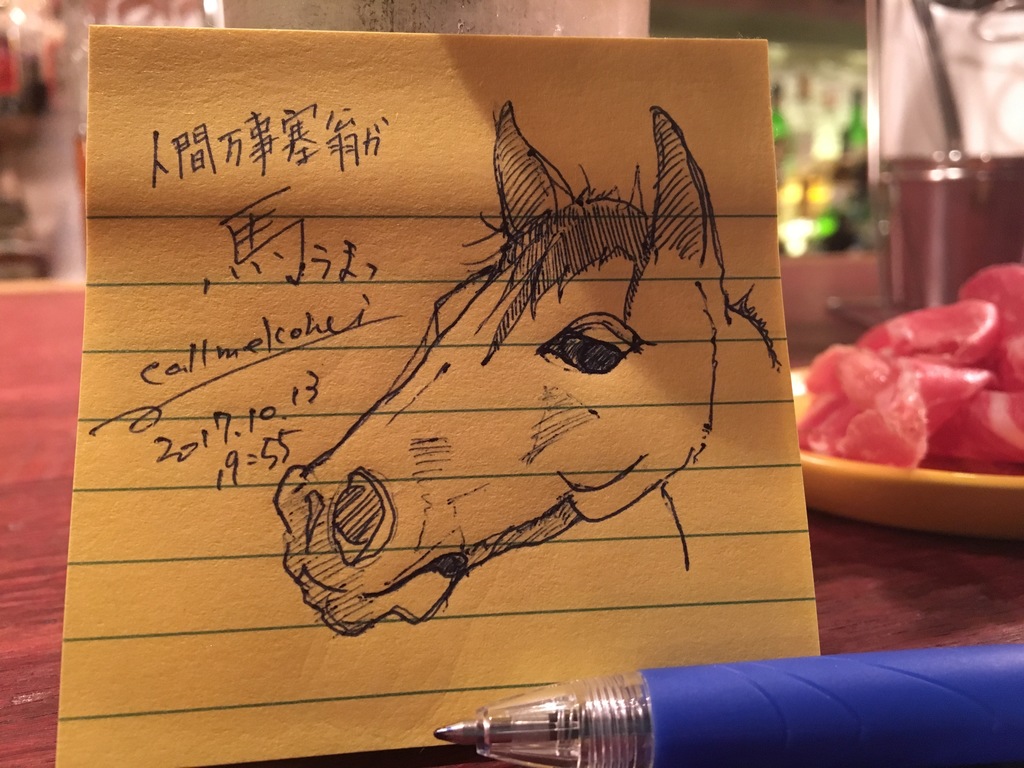 人間万事塞翁が
馬うまっ
callmekohei
2017.10.13
19:55